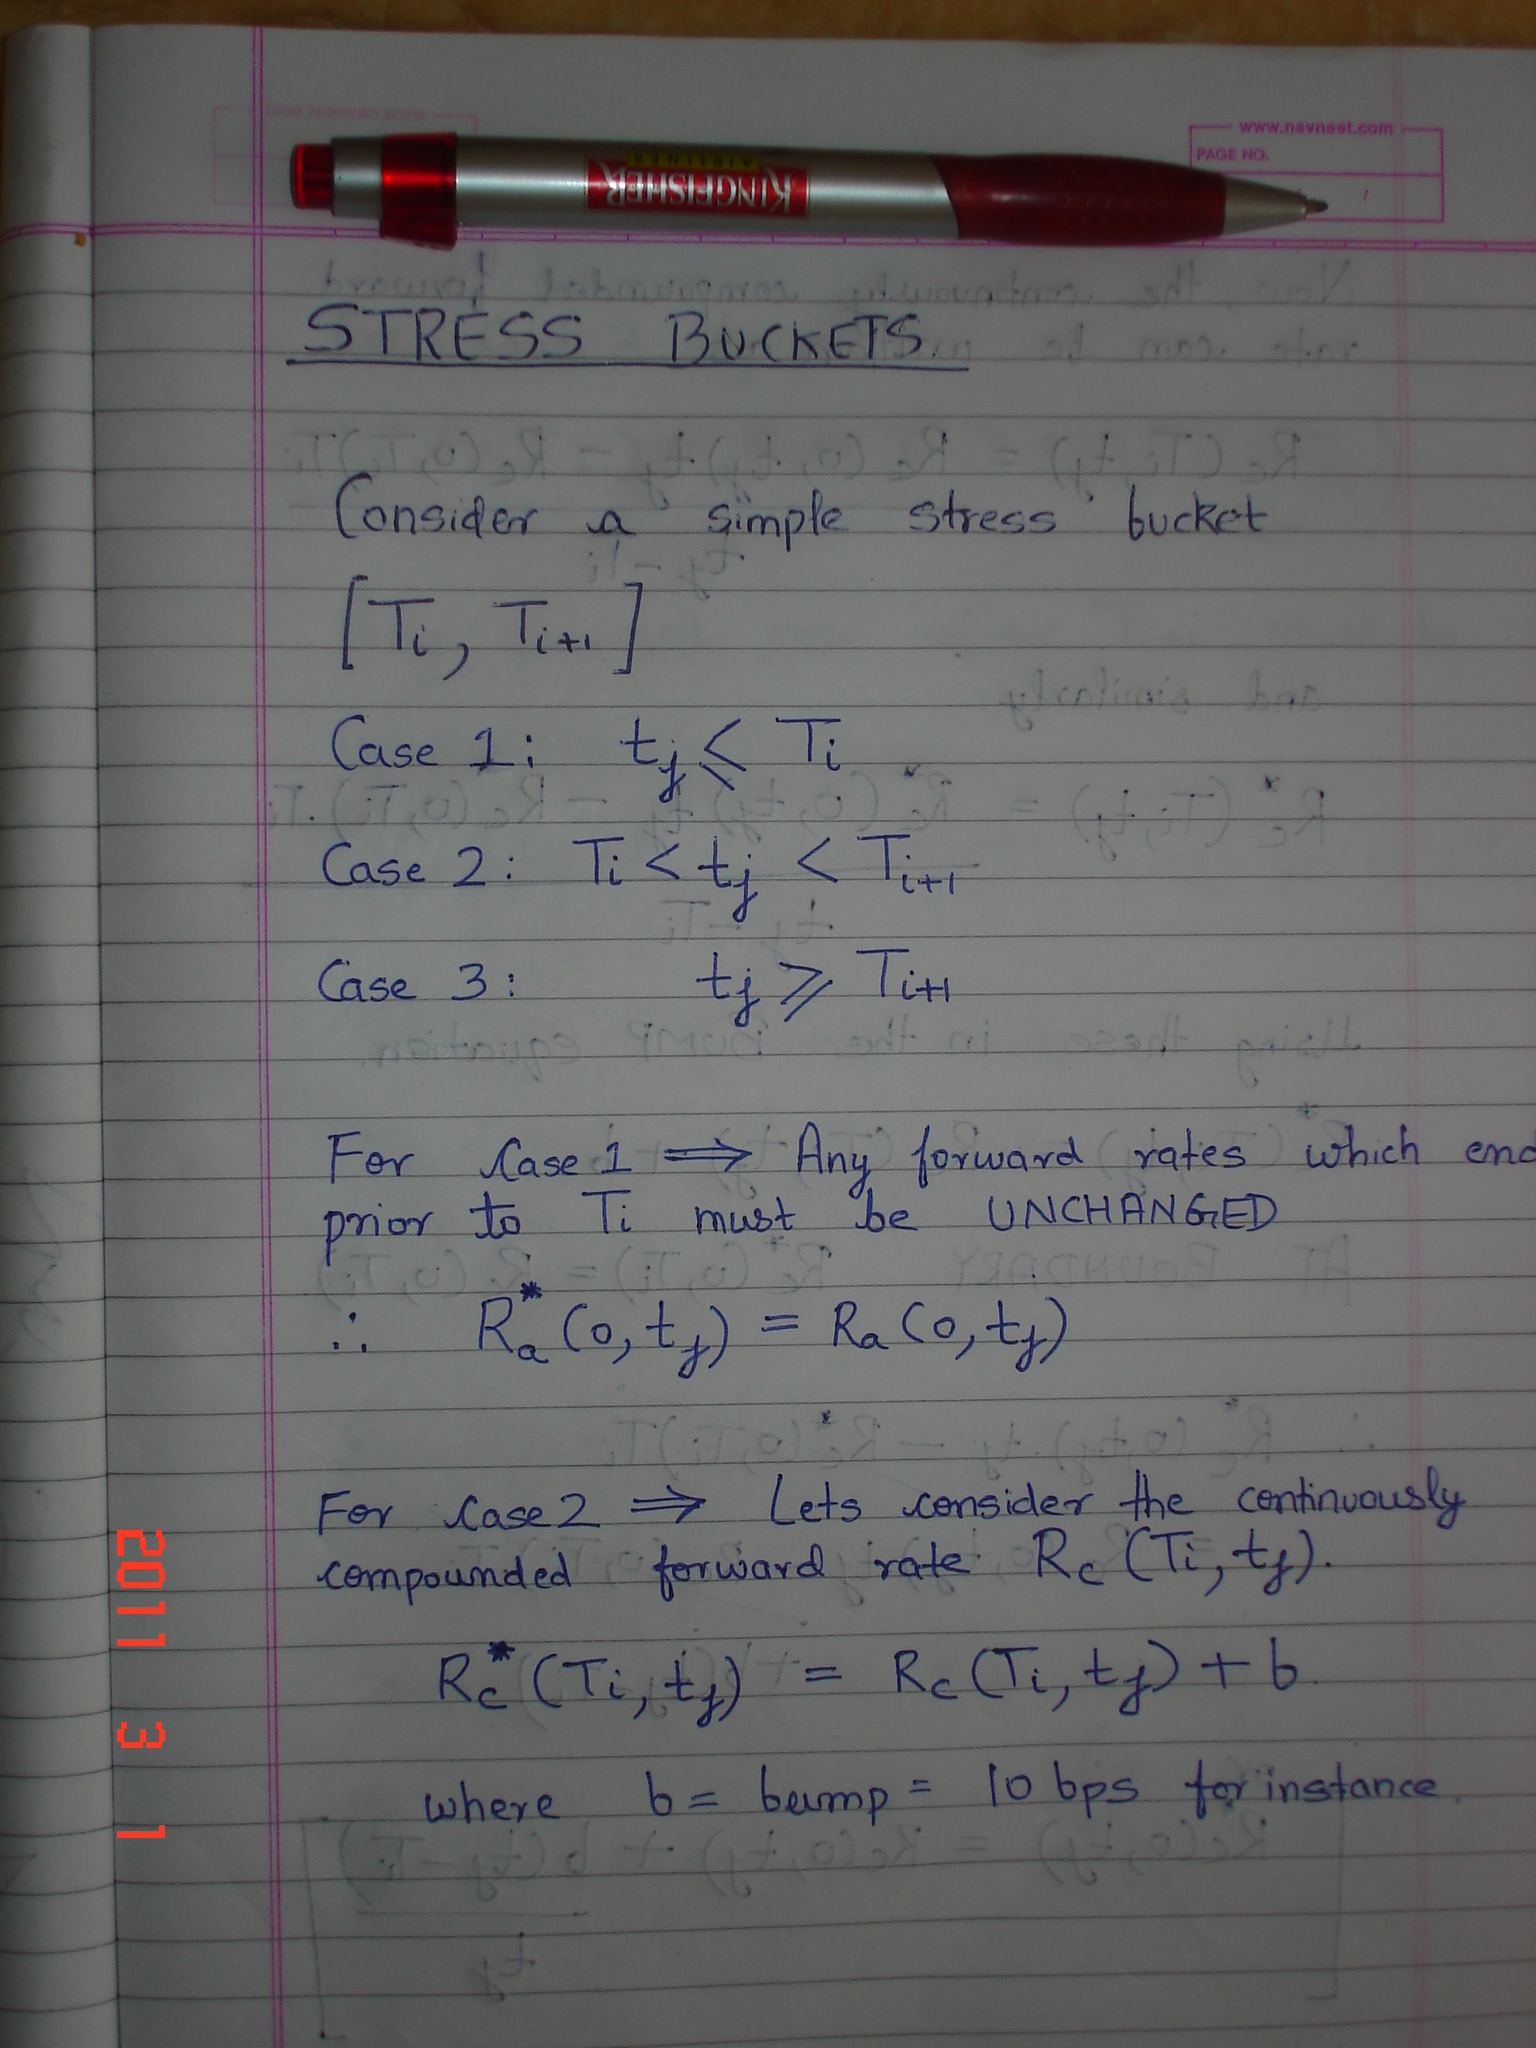 www.navneet.com
PAGE NO.
KINGFISHER
AIRLINES
STRESS BUCKETS.
Consider a simple stress bucket
[Ti, Ti+1]
Case 1: tj ≤ Ti
Case 2: Ti < tj < Ti+1
Case 3: tj ≥ Ti+1
For Case 1 ⟹ Any forward rates which end
prior to Ti must be UNCHANGED
∴ Ra*(0, tj) = Ra(0, tj)
For Case 2 ⟹ Lets consider the continuously
compounded forward rate Rc(Ti, tj).
Rc*(Ti, tj) = Rc(Ti, tj) + b
where b = bump = 10 bps for instance.
2011 3 1